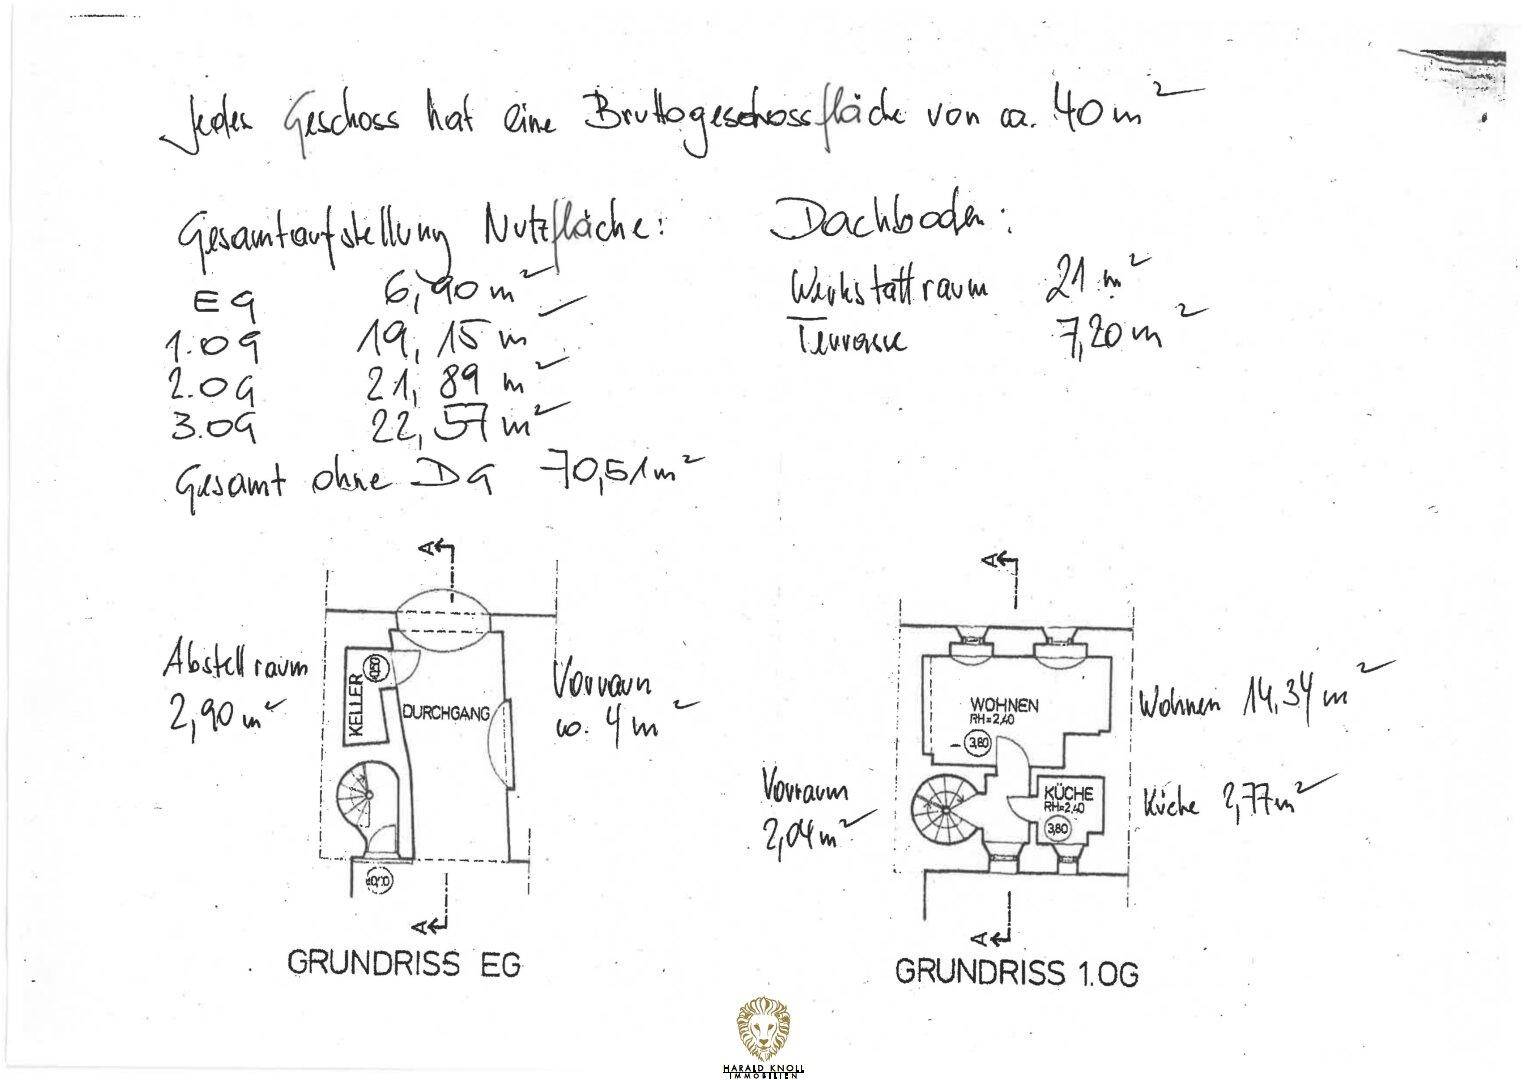 Jedes Geschoss hat eine Bruttogeschossfläche von ca. 40 m²
Gesamtaufstellung Nutzfläche:
EG 6,90 m²
1.OG 19,15 m²
2.OG 21,89 m²
3.OG 22,57 m²
Gesamt ohne DG 70,51 m²
Dachboden:
Werkstattraum 21 m²
Terrasse 7,20 m²
A
Abstellraum
2,90 m²
KELLER
DURCHGANG
Vorraum
ca. 4 m²
±0,00
A
GRUNDRISS EG
A
WOHNEN
RH=2,40
3,80
Wohnen 14,34 m²
Vorraum
2,04 m²
KÜCHE
RH=2,40
3,80
Küche 2,77 m²
A
GRUNDRISS 1.OG
HARALD KNOLL
IMMOBILIEN